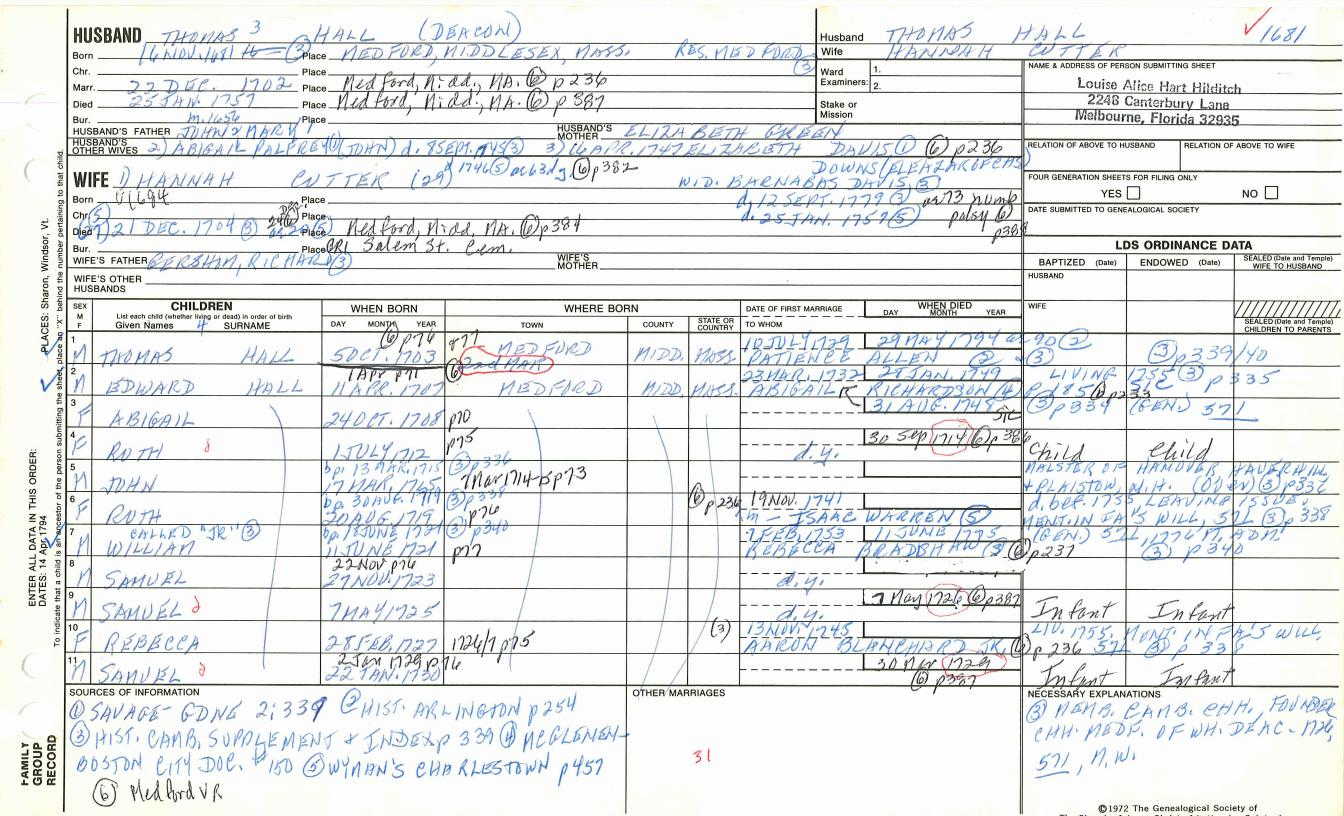 HUSBAND THOMAS 3 HALL (DEACON)
Born 16 NOV. 1681 (3) Place MEDFORD, MIDDLESEX, MASS. RES. MEDFORD (3)
Chr. Place
Marr. 22 DEC. 1702 Place Medford, Midd., MA. (6) p236
Died 25 JAN. 1757 Place Medford, Midd., MA. (6) p387
Bur. m. 1656 Place
HUSBAND'S FATHER JOHN & MARY HUSBAND'S MOTHER ELIZABETH GREEN
HUSBAND'S OTHER WIVES 2) ABIGAIL PALFREY (1) (JOHN) d. 8 SEPT. 1745 (3) 3) 16 APR. 1747 ELIZABETH DAVIS (1) (6) p236
d 1746 (5) ae 63 dg. (6) p382 DOWNS (ELEAZAR OF CAS)
WIFE 1) HANNAH CUTTER (29) WID. BARNABAS DAVIS (3)
Born 1694 Place d. 12 SEPT. 1779 (3) ae 73 numb palsy (6) p384
Chr. (5) Place d. 25 JAN. 1757 (5)
Died 21 DEC. 1704 (3) Place Medford, Midd, MA. (6) p384
Bur. Place GR1 Salem St. Cem.
WIFE'S FATHER GERSHAM, RICHARD (3) WIFE'S MOTHER
WIFE'S OTHER HUSBANDS
Husband THOMAS HALL 1681
Wife HANNAH CUTTER
Ward Examiners: 1. 2.
Stake or Mission
NAME & ADDRESS OF PERSON SUBMITTING SHEET
Louise Alice Hart Hilditch
2248 Canterbury Lane
Melbourne, Florida 32935
RELATION OF ABOVE TO HUSBAND RELATION OF ABOVE TO WIFE
FOUR GENERATION SHEETS FOR FILING ONLY
YES NO
DATE SUBMITTED TO GENEALOGICAL SOCIETY
LDS ORDINANCE DATA
BAPTIZED (Date) ENDOWED (Date) SEALED (Date and Temple) WIFE TO HUSBAND
HUSBAND
WIFE
SEALED (Date and Temple) CHILDREN TO PARENTS
SEX M F CHILDREN WHEN BORN WHERE BORN DATE OF FIRST MARRIAGE WHEN DIED
List each child (whether living or dead) in order of birth
Given Names 4 SURNAME DAY MONTH YEAR TOWN COUNTY STATE OR COUNTRY TO WHOM DAY MONTH YEAR
(6) p76 p77
1 M THOMAS HALL 5 OCT. 1703 MEDFORD MIDD. MASS. 10 JULY 1729 29 MAY 1794 ae 90 (2)
(6) 2nd MAR PATIENCE ALLEN (2) (3) (3) p339/40
2 M EDWARD HALL 1 Apr p71 11 APR. 1707 MEDFORD MIDD. MASS. 23 MAR. 1732 21 JAN. 1749 LIVING 1755 (3) p335
ABIGAIL RICHARDSON (4)
3 F ABIGAIL 24 OCT. 1708 p70 31 AUG. 1745 (3) p339 (GEN.) 571
4 F RUTH 1 JULY 1712 p75 d.y. 30 Sep 1714 (6) p386 Child Child
5 M JOHN bp. 13 MAR. 1715 (3) p336 17 MAR. 7 Mar 1714-5 p73 MALSTER OF HANOVER HAVERHILL
& PLAISTON, N.H.
6 F RUTH bp. 30 AUG. 1719 (3) p338 20 AUG. 1719 p76 (6) p236 19 NOV. 1741 d. bef. 1755 LEAVING ISSUE,
m - ISAAC WARREN (5) MENT. IN FA'S WILL, 571 (3) p338
7 M CALLED "JR" (3) WILLIAM bp 18 JUNE 1721 (3) p340 11 JUNE 1721 p77 1 FEB. 1753 11 JUNE 1775 (GEN.) 571
REBECCA BRADSHAW (3) (6) p237 (3) p340
8 M SAMUEL 22 Nov p76 27 NOV. 1723 d.y.
9 M SAMUEL d 7 MAY 1725 d.y. 7 May 1726 (6) p387 Infant Infant
10 F REBECCA 28 FEB. 1727 1726/7 p75 (3) 13 NOV. 1745 LIV. 1755, MENT. IN FA'S WILL,
AARON BLANCHARD JR. (6) p236 571 (3) p338
11 M SAMUEL d 2 Jan 1729 p76 22 JAN. 1730 30 Mar 1729 (6) p387 Infant Infant
SOURCES OF INFORMATION
(1) SAVAGE - GDNE 2:339 (2) HIST. ARLINGTON p254
(3) HIST. CAMB. SUPPLEMENT & INDEX p 339 (4) MCGLENEN-
BOSTON CITY DOC. #150 (5) WYMAN'S CHARLESTOWN p457
(6) Medford VR
OTHER MARRIAGES
31
NECESSARY EXPLANATIONS
(3) MEMB. CAMB. CHH., FOUNDER
CHH. MEDF. OF WH. DEAC. - 1726,
571, N.W.
©1972 The Genealogical Society of
FAMILY GROUP RECORD
ENTER ALL DATA IN THIS ORDER:
DATES: 14 Apr 1794 PLACES: Sharon, Windsor, Vt.
To indicate that a child is an ancestor of the person submitting the sheet, place an "X" behind the number pertaining to that child.